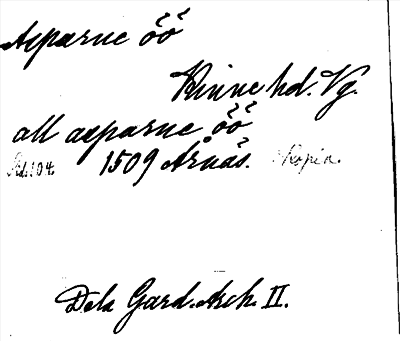 Aspärne öö
Kinne hd. Vg.
all aspärne öö
1509 Årnäs. Kopia.
Dela Gard. Ark. II.